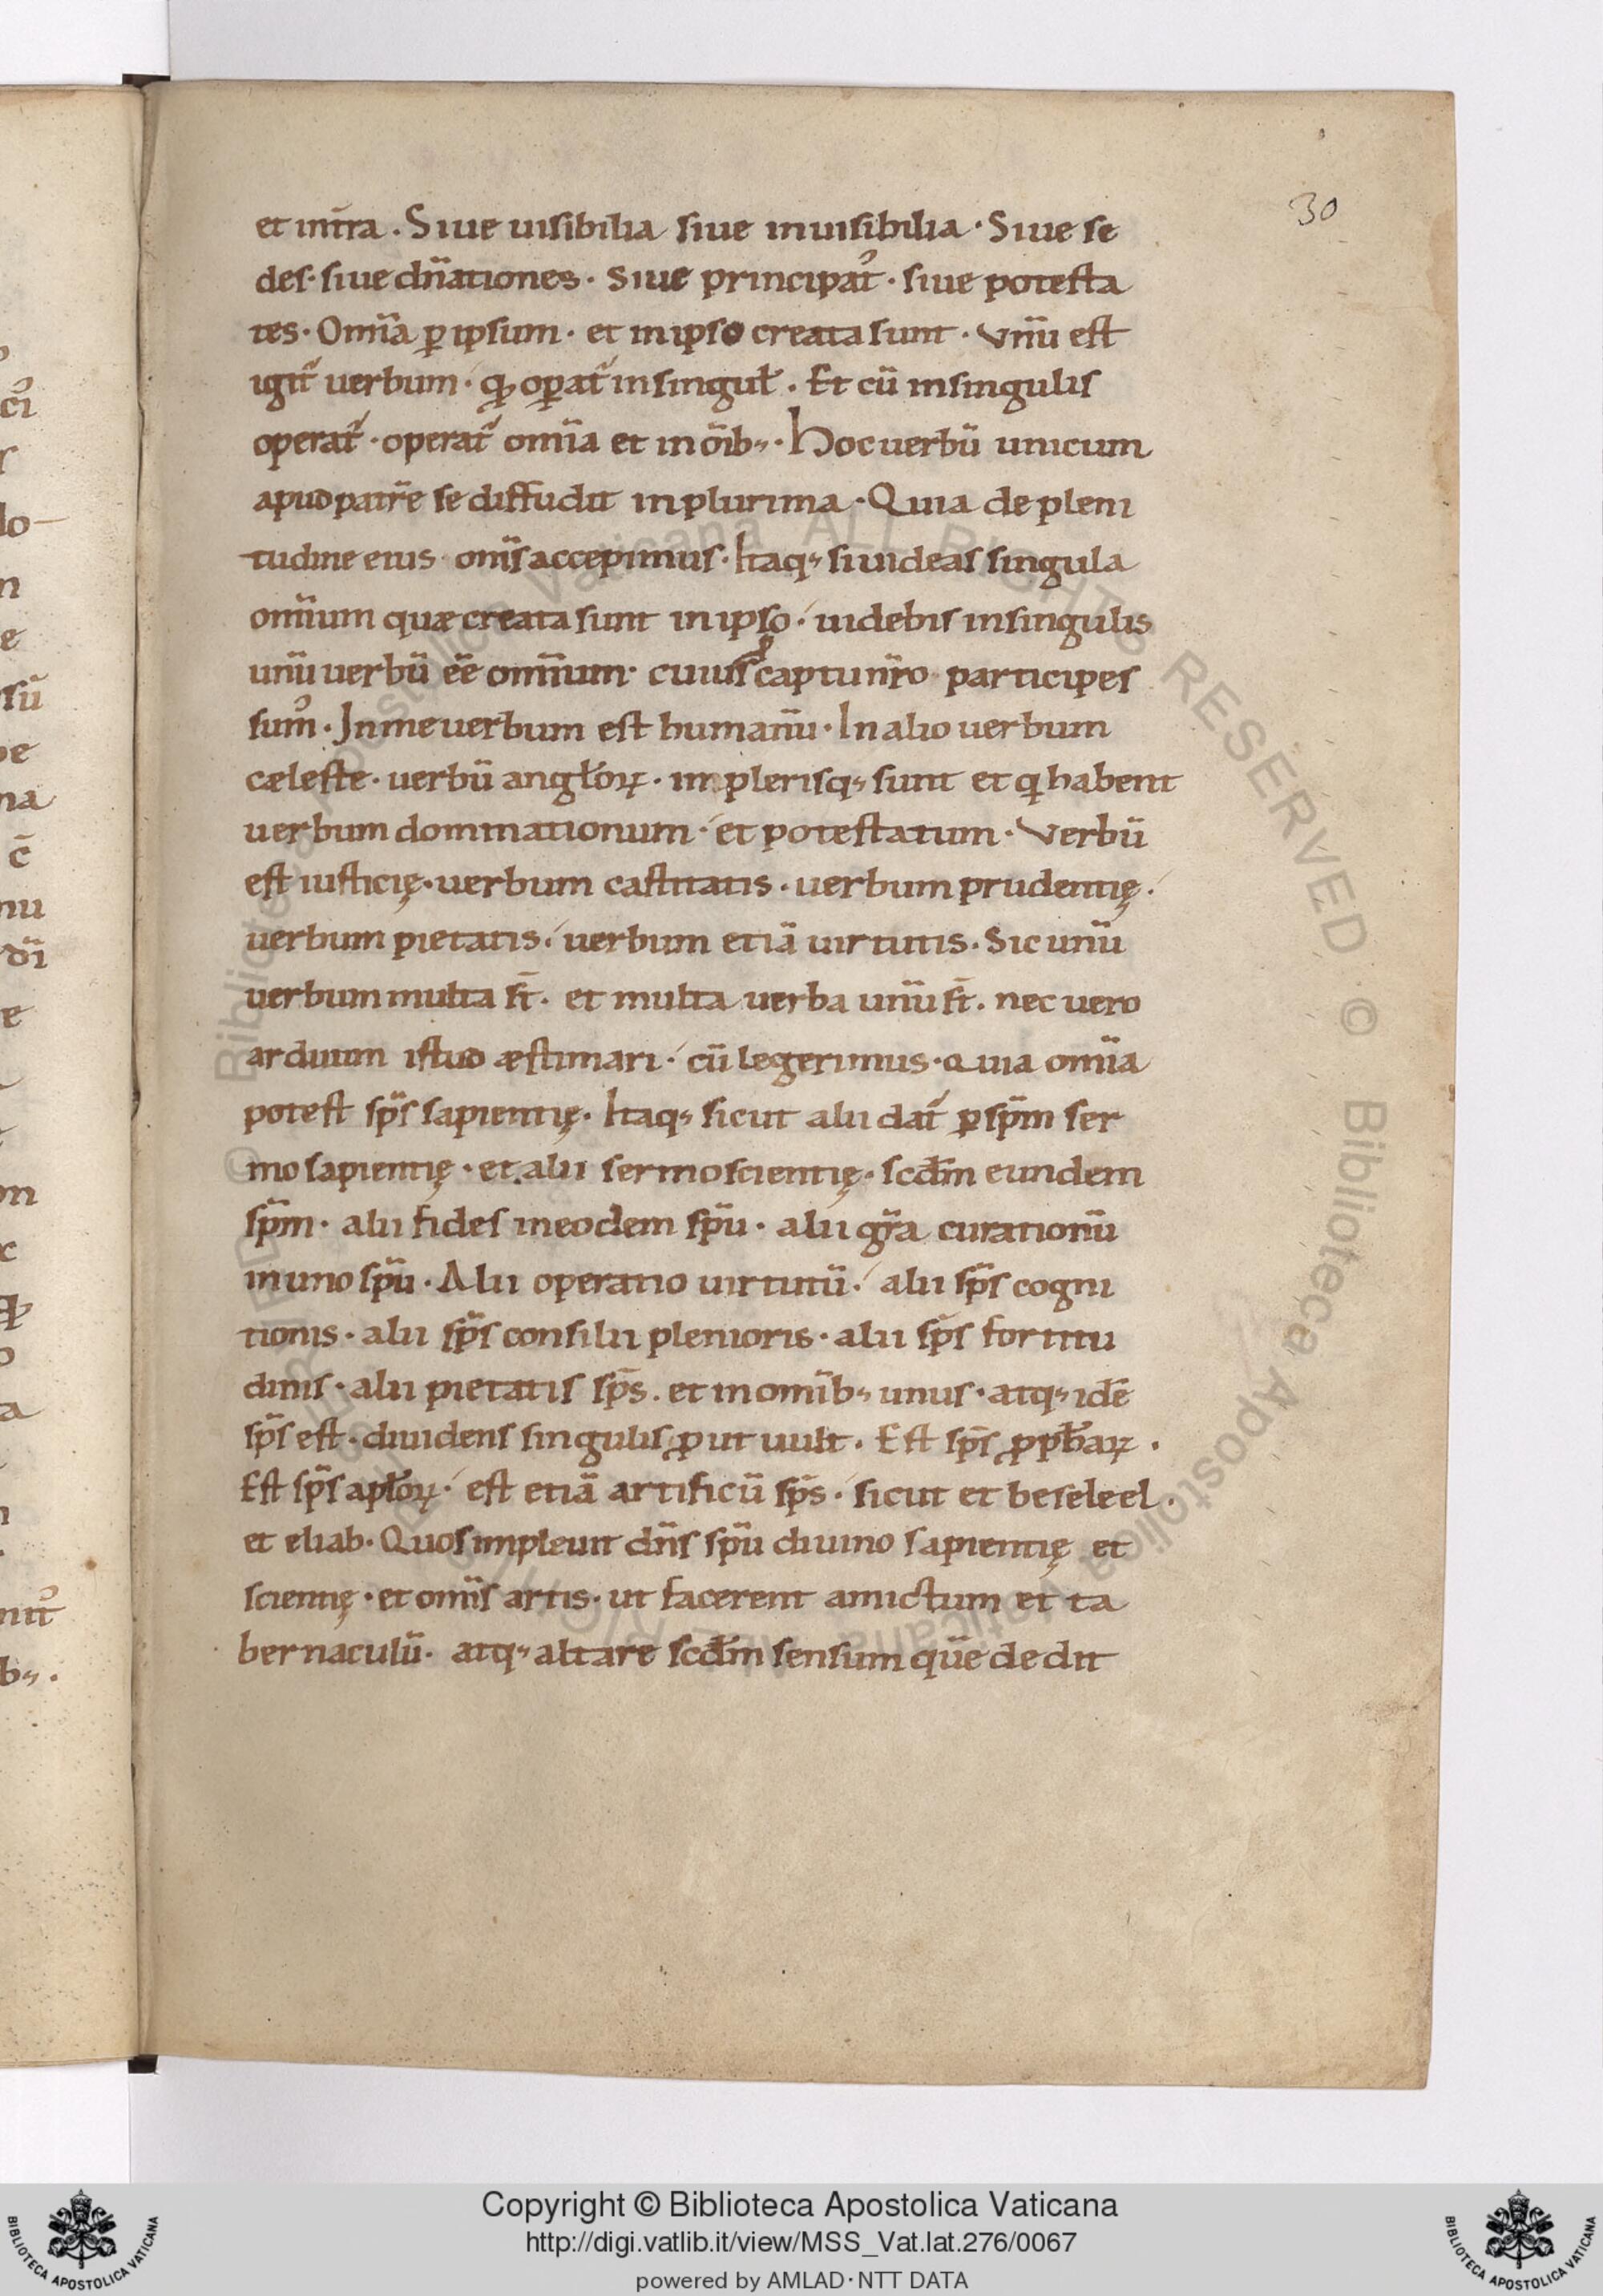 30
et int̄ra . Siue uisibilia siue inuisibilia · Siue se
des · siue dn̄ationes · siue principat᾽ · siue potesta
tes · Omīa ꝑ ipsum · et in ipso creata sunt · Vnū est
igit᷑ uerbum · qḍ oꝑat᷑ in singul̄ . Et cū in singulis
operat᷑ · operat᷑ omīa et in oīb; · Hoc uerbū unicum
apud patrē se diffudit in plurima · Quia de pleni
tudine eius omīs accepimus · Itaq; si uideas singula
omīum quæ creata sunt in ipso · uidebis in singulis
unū uerbū eē omnium · cuius captu nr̄o participes
sum᾽ · In me uerbum est humanū · In alio uerbum
cæleste · uerbū angl̄oꝝ · in plerisq; sunt et q habent
uerbum dominationum · et potestatum · Verbū
est iusticię · uerbum castitatis · uerbum prudentię ·
uerbum pietatis · uerbum etiā uirtutis · Sic unū
uerbum multa st̄ · et multa uerba unū st̄ . nec uero
arduum istud æstimari · cū legerimus · Quia omīa
potest sp̄s sapientię · Itaq; sicut alii dat᷑ ꝑ sp̄m ser
mo sapientię · et alii sermo scientię · scd̄m eundem
sp̄m · alii fides in eodem sp̄u · alii gr̄a curationū
in uno sp̄u · Alii operatio uirtutū · alii sp̄s cogni
tionis · alii sp̄s consilii plenioris · alii sp̄s fortitu
dinis · alii pietatis sp̄s . et in omīb; unus · atq; idē
sp̄s est · diuidens singulis ꝓut uult . Est sp̄s ꝓph̄aꝝ .
Est sp̄s apl̄oꝝ · est etiā artificū sp̄s · sicut et beseleel .
et eliab · Quos impleuit dn̄s sp̄u diuino sapientię et
scientię · et omīs artis · ut facerent amictum et ta
bernaculū · atq; altare scd̄m sensum quē dedit
© Biblioteca Apostolica Vaticana ALL RIGHTS RESERVED
Copyright © Biblioteca Apostolica Vaticana
http://digi.vatlib.it/view/MSS_Vat.lat.276/0067
powered by AMLAD·NTT DATA
BIBLIOTECA APOSTOLICA VATICANA
BIBLIOTECA APOSTOLICA VATICANA